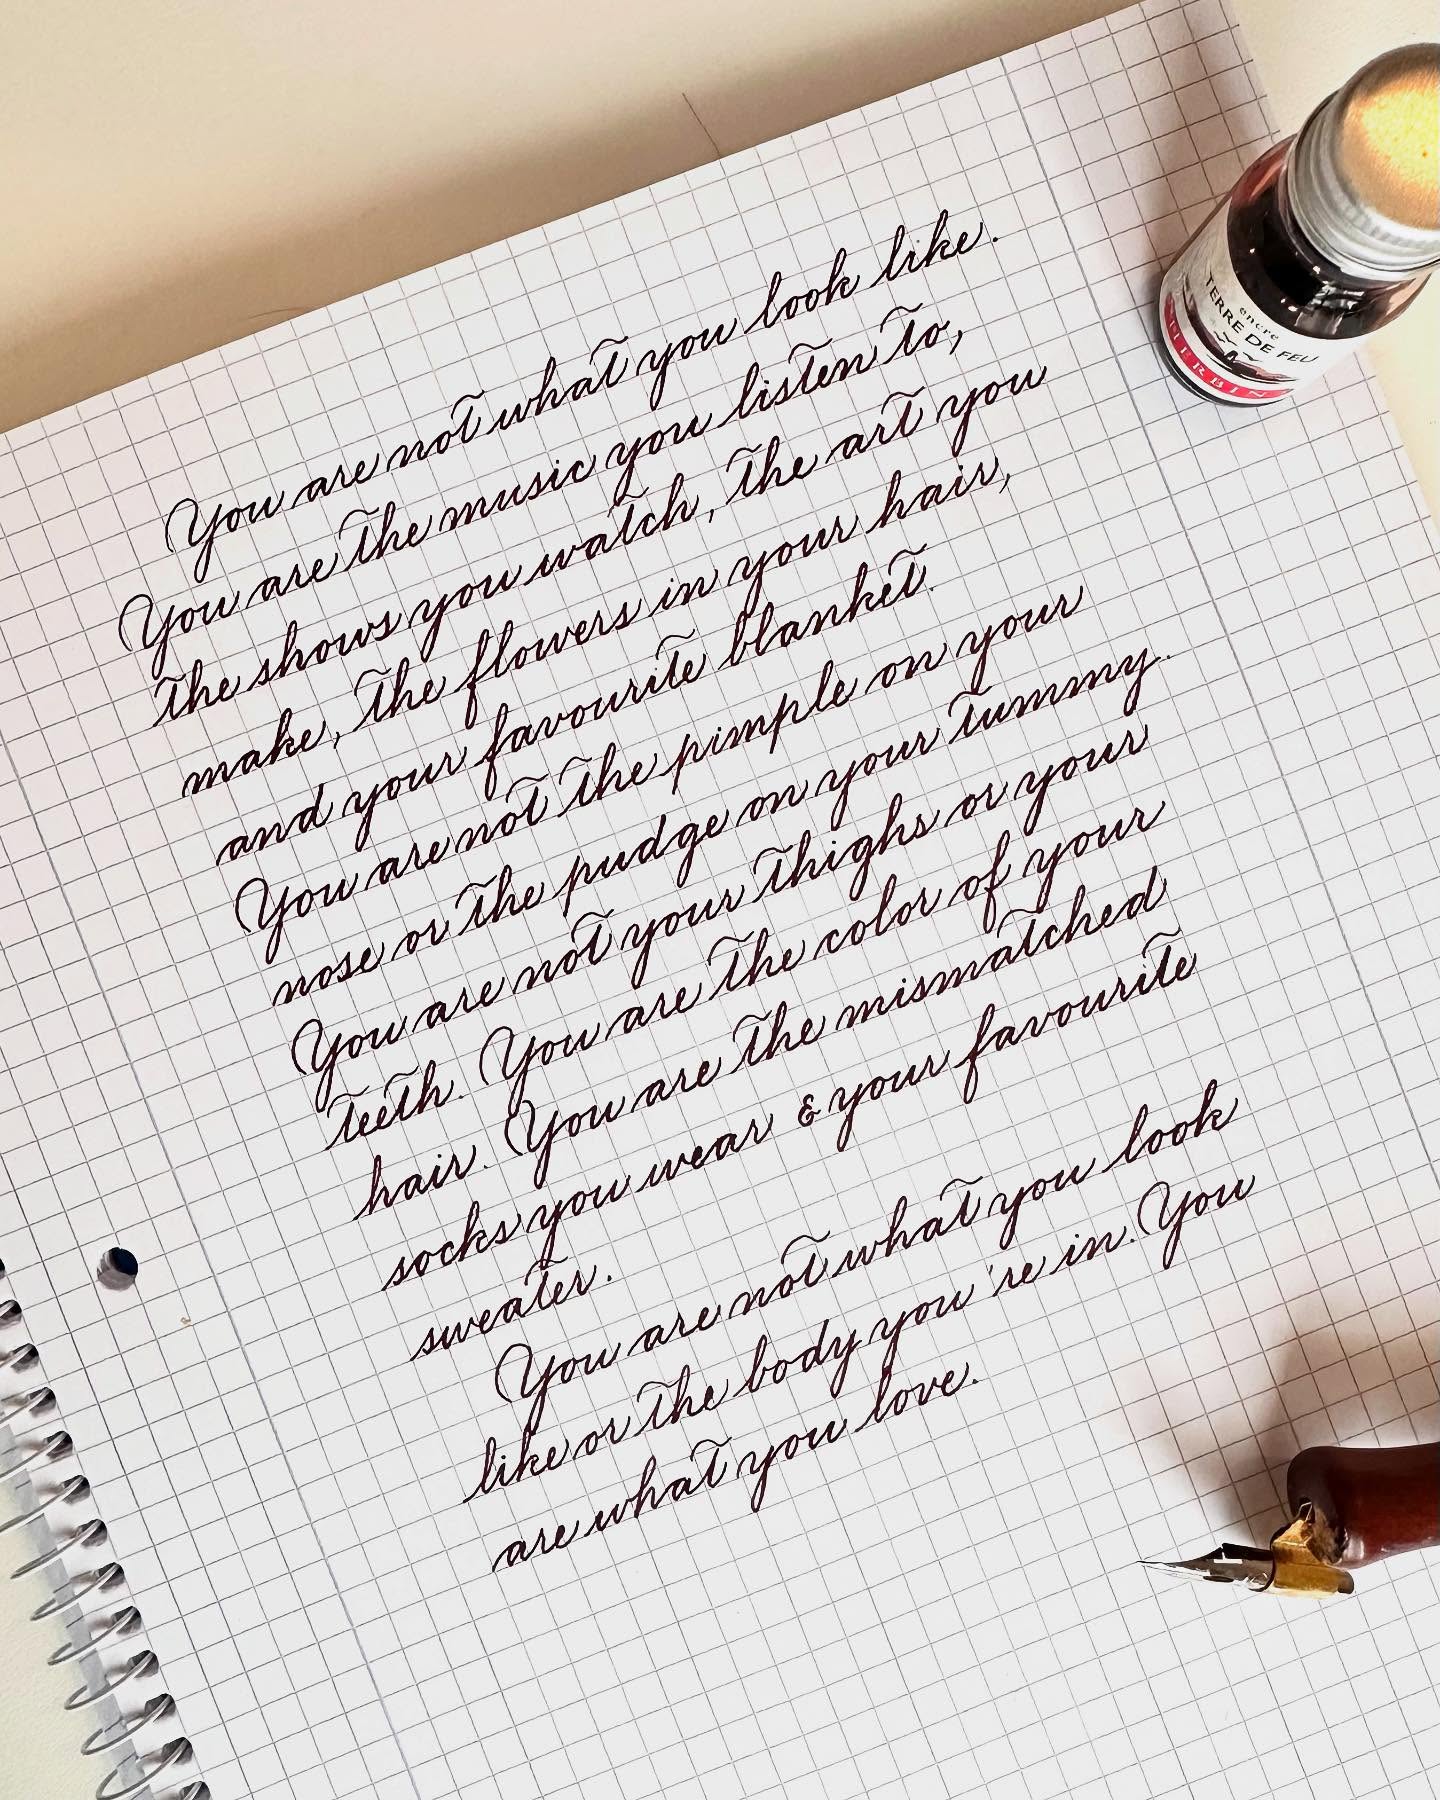 You are not what you look like.
You are the music you listen to,
the shows you watch, the art you
make, the flowers in your hair,
and your favourite blanket.
You are not the pimple on your
nose or the pudge on your tummy.
You are not your thighs or your
teeth. You are the color of your
hair. You are the mismatched
socks you wear & your favourite
sweater.
You are not what you look
like or the body you're in. You
are what you love.
encre
TERRE DE FEU
HERBIN